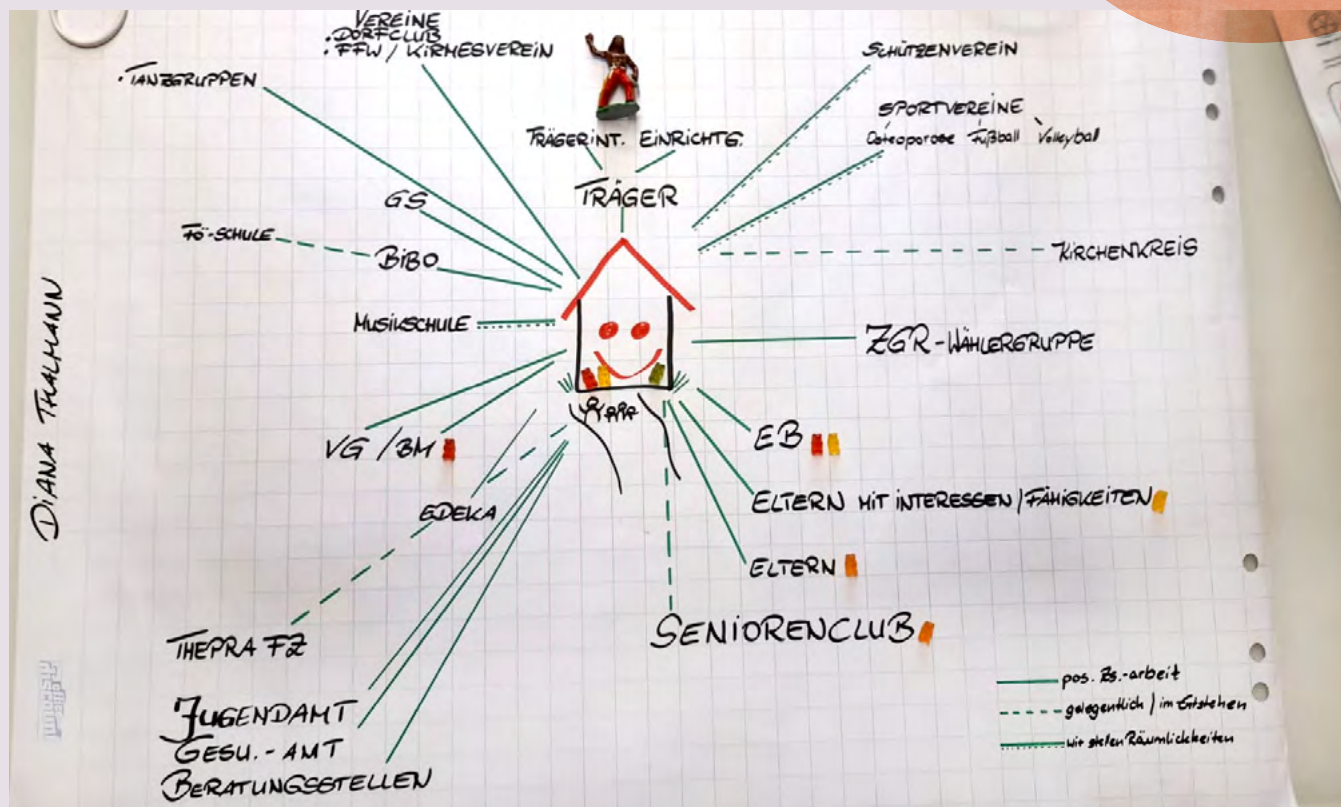 VEREINE
• DORFCLUB
• FFW / KIRMESVEREIN
• TANZGRUPPEN
SCHÜTZENVEREIN
SPORTVEREINE
Osteoporose Fußball Volleyball
TRÄGERINT. EINRICHTG.
TRÄGER
GS
FÖ-SCHULE
BIBO
KIRCHENKREIS
MUSIKSCHULE
ZGR-WÄHLERGRUPPE
DIANA THALMANN
VG / BM
EB
EDEKA
ELTERN MIT INTERESSEN / FÄHIGKEITEN
ELTERN
SENIORENCLUB
THEPRA FZ
JUGENDAMT
GESU.-AMT
BERATUNGSSTELLEN
pos. Zs.-arbeit
gelegentlich / im Entstehen
wir stellen Räumlichkeiten